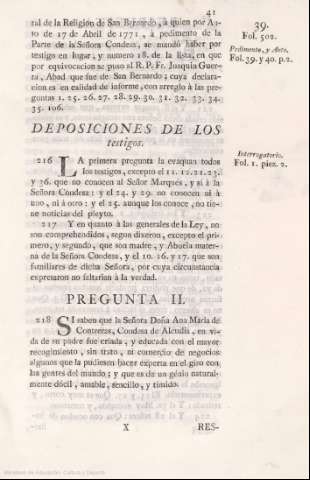 41
ral de la Religión de San Bernardo, á quien por Au-
to de 17 de Abril de 1771, á pedimento de la
Parte de la Señora Condesa, se mandó haber por
testigo en lugar, y numero 18. de la lista, en que
por equivocacion se puso al R. P. Fr. Joaquin Guer-
ra, Abad que fue de San Bernardo; cuya declara-
cion es en calidad de informe, con arreglo á las pre-
guntas 1. 25. 26. 27. 28. 29. 30. 31. 32. 33. 34.
35. 106.
39.
Fol. 502.
Pedimento, y Auto.
Fol. 39. y 40. p.2.
DEPOSICIONES DE LOS
testigos.
216 LA primera pregunta la evaquan todos
los testigos, excepto el 11. 12. 21. 23.
y 36. que no conocen al Señor Marqués, y sí á la
Señora Condesa: y el 24. y 29. no conocen ni á
uno, ni á otro: y el 25. aunque los conoce, no tie-
ne noticias del pleyto.
Interrogatorio.
Fol. 1. piez. 2.
217 Y en quanto á las generales de la Ley, no
son comprehendidos, segun dixeron, excepto el pri-
mero, y segundo, que son madre, y Abuela mater-
na de la Señora Condesa, y el 10. 16. y 17. que son
familiares de dicha Señora, por cuya circunstancia
expresaron no faltarian á la verdad.
PREGUNTA II.
218 SI saben que la Señora Doña Ana Maria de
Contreras, Condesa de Alcudia, en vi-
da de su padre fue criada, y educada con el mayor
recogimiento, sin trato, ni comercio de negocios
algunos que la pudiesen hacer experta en el giro con
las gentes del mundo; y que es de un génio natural-
mente dócil, amable, sencillo, y tímido.
X RES-
Ministerio de Educación, Cultura y Deporte